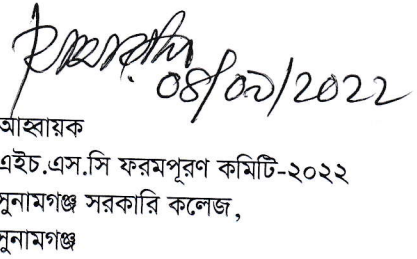 08/08/2022
আহ্বায়ক
এইচ.এস.সি ফরমপূরণ কমিটি-২০২২
সুনামগঞ্জ সরকারি কলেজ,
সুনামগঞ্জ